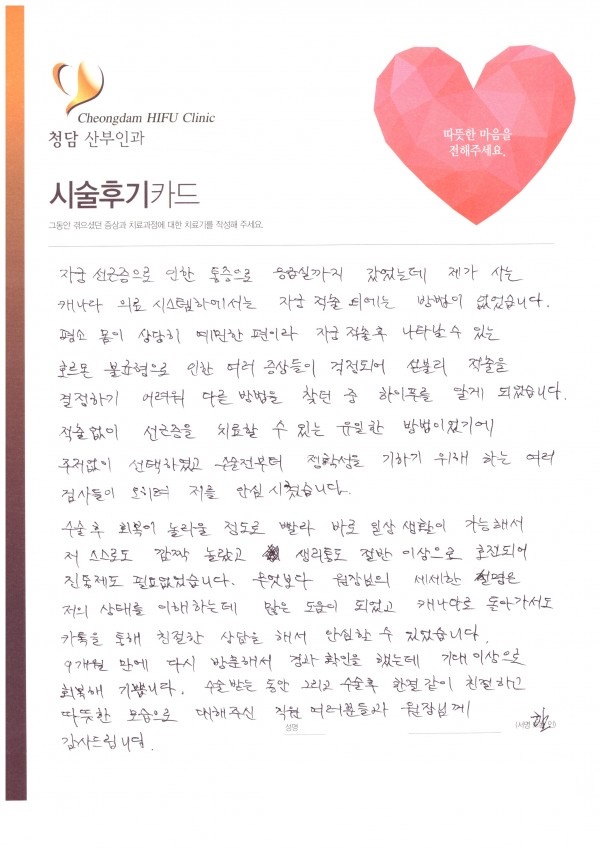 Cheongdam HIFU Clinic
청담 산부인과
따뜻한 마음을
전해주세요.
시술후기카드
그동안 겪으셨던 증상과 치료과정에 대한 치료기를 작성해 주세요.
자궁 선근증으로 인한 통증으로 응급실까지 갔었는데 제가 사는
캐나다 의료 시스템하에서는 자궁 적출 외에는 방법이 없었습니다.
평소 몸이 상당히 예민한 편이라 자궁 적출후 나타날 수 있는
호르몬 불균형으로 인한 여러 증상들이 걱정되어 선불리 적출을
결정하기 어려워 다른 방법을 찾던 중 하이푸를 알게 되었습니다.
적출없이 선근증을 치료할 수 있는 유일한 방법이었기에
주저없이 선택하였고 수술전부터 정확성을 기하기 위해 하는 여러
검사들이 오히려 저를 안심 시켰습니다.
수술 후 회복이 놀라울 정도로 빨라 바로 일상 생활이 가능해서
저 스스로도 깜짝 놀랐고 생리통도 절반 이상으로 호전되어
진통제도 필요없었습니다. 무엇보다 원장님의 세세한 설명은
저의 상태를 이해하는데 많은 도움이 되었고 캐나다로 돌아가서도
카톡을 통해 친절한 상담을 해서 안심할 수 있었습니다.
9개월 만에 다시 방문해서 경과 확인을 했는데 기대 이상으로
회복해 기쁩니다. 수술 받는 동안 그리고 수술후 한결 같이 친절하고
따뜻한 모습으로 대해주신 직원 여러분들과 원장님께
감사드립니다.
성명
(서명 인)